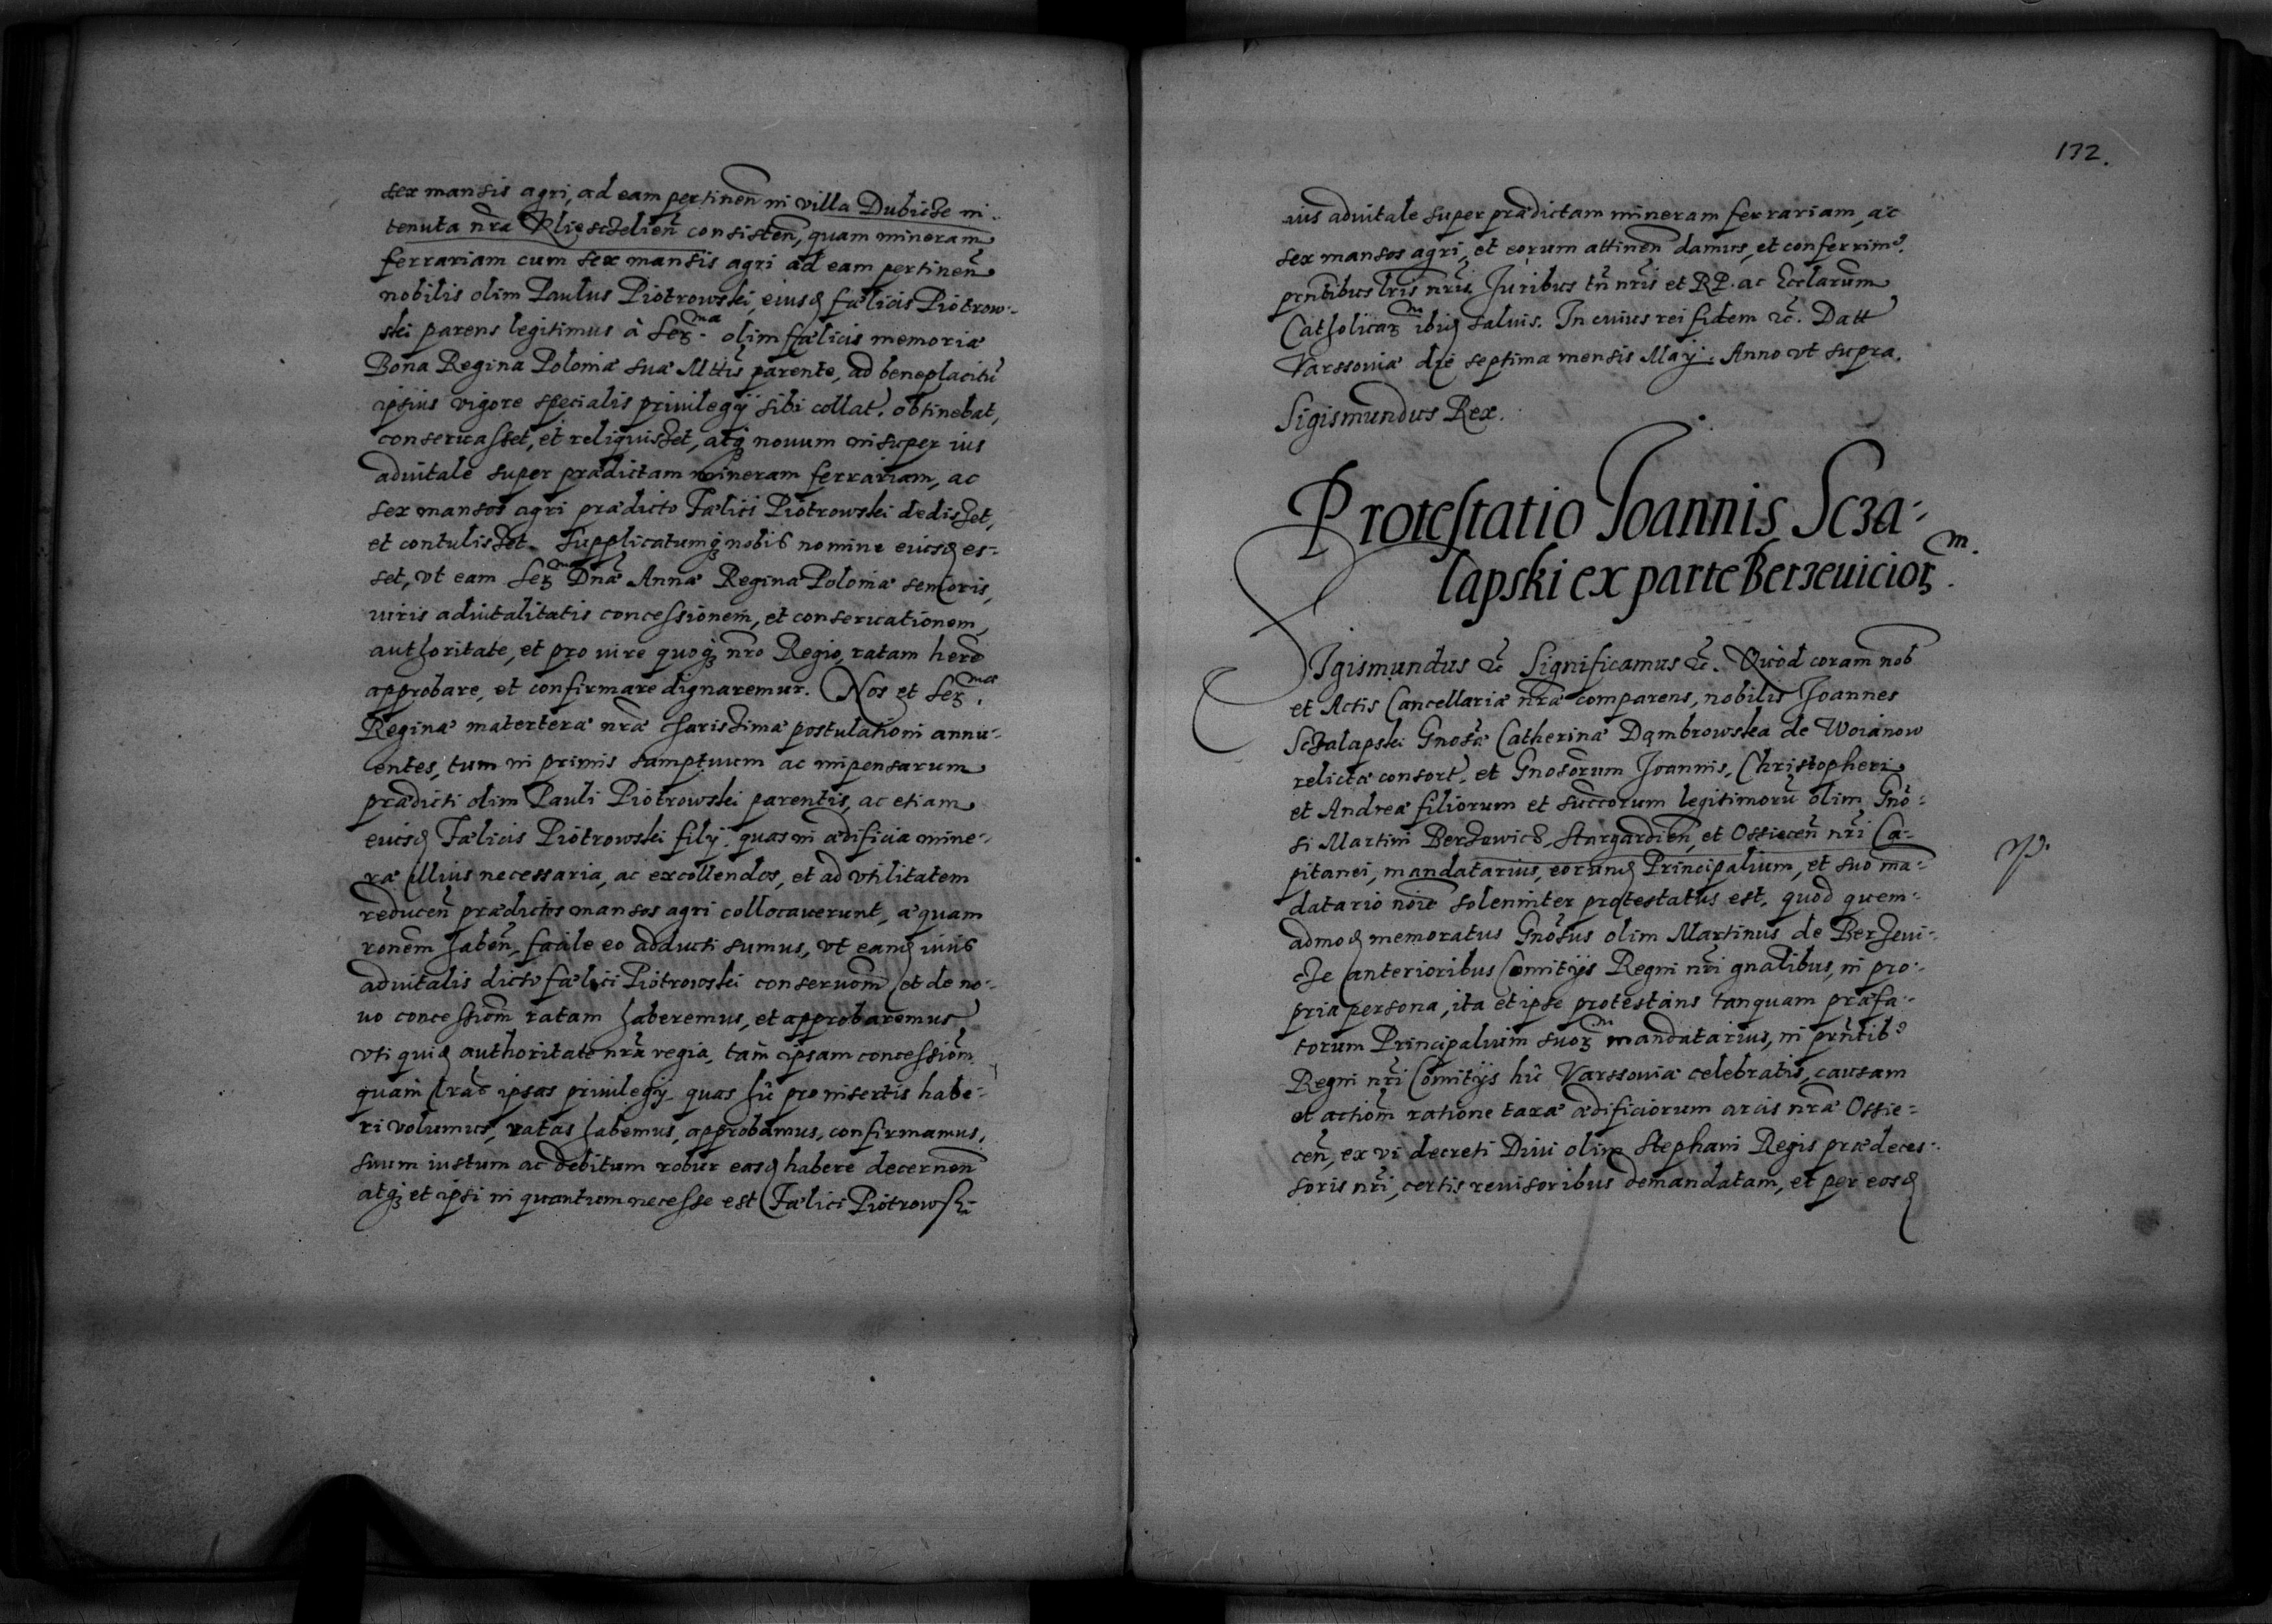 sex mansis agri, ad eam pertinen̄ in villa Dubicze in
tenuta nrã Kliesczelien̄ consisten̄, quam mineram
ferrariam cum sex mansis agri ad eam pertinen̄
nobilis olim Paulus Piotrowski, eiusd fælicis Piotrow-
ski parens legitimus à Ser.ma olim fælicis memoriæ
Bona Regina Poloniæ suæ Mttis parente, ad beneplacitũ
ipsius vigore specialis priuilegij sibi collat. obtinebat,
conseruasset, et reliquisset, atq nouum insuper ius
aduitale super prædictam mineram ferrariam, ac
sex mansos agri prædicto Fælici Piotrowski dedisset,
et contulisset. Supplicatumq nobis nomine eiusd es-
set, vt eam Ser.mæ Dnæ Annæ Reginæ Poloniæ senioris,
iuris aduitalitatis concessionem, et conseruationem,
authoritate, et pro iure quoq nro Regio, ratam herẽ
approbare, et confirmare dignaremur. Nos et Ser.mæ
Reginæ materteræ nræ charissimæ postulationi annu-
entes, tum in primis sumptuum ac impensarum
prædicti olim Pauli Piotrowski parentis, ac etiam
eiusd Fælicis Piotrowski filij. quas in ædificia mine-
ræ illius necessaria, ac excollendos, et ad vtilitatem
reducen̄ prædictos mansos agri collocauerunt, æquam
ronem haben̄, facile eo adducti sumus, vt eand iuris
aduitalis dicto fælici Piotrowski conseruom̃ et de no-
uo concessiom̃ ratam haberemus, et approbaremus
vti quid authoritate nrã regia, tam̃ ipsam concessiom̃
quam lras ipsas priuilegij quas hic pro insertis habe-
ri volumus, ratas habemus, approbamus, confirmamus,
suum iustum ac debitum robur easd habere decernen̄
atq et ipsi in quantum necesse est Fælici Piotrowski
132.
ius aduitale super prædictam mineram ferrariam, ac
sex mansos agri, et eorum attinen̄ damus, et conferrim9.
pntibus lris nris. Juribus tñ nris et RP. ac Ecclarum
Catholicar.m ibid saluis. In cuius rei fidem etc̃. Datt
Varssouiæ die septima mensis Maij. Anno vt supra.
Sigismundus Rex.
Protestatio Joannis Scza-
lapski ex parte Berzeuicior.m
Sigismundus etc̃ Significamus etc̃. Quod coram nob
et Actis Cancellariæ nræ comparens, nobilis Joannes
Sczalapski Gnosæ Catherinæ Dąmbrowska de Woianow
relictæ consort. et Gnosorum Joannis, Christopheri
et Andreæ filiorum et succorum legitimorũ olim Gnõ-
si Martini Berzewicz, Stargardien̄, et Ossiecen̄ nri Ca-
pitanei, mandatarius, eorund Principalium, et suo ma-
datario noie solenniter protestatus est, quod quem-
admod memoratus Gnosus olim Martinus de Berzeui-
cze anterioribus Comitijs Regni nri gnalibus, in pro-
pria persona, ita et ipse protestans tanquam præfa-
torum Principalium suor.m mandatarius, in prntib9
Regni nri Comitijs hic Varssouiæ celebratis, causam
et actiom̃ ratione taxæ ædificiorum arcis nræ Ossie-
cen̄, ex vi decreti Diui olim Stephani Regis prædeces-
soris nri, certis reuisoribus demandatam, et per eosd